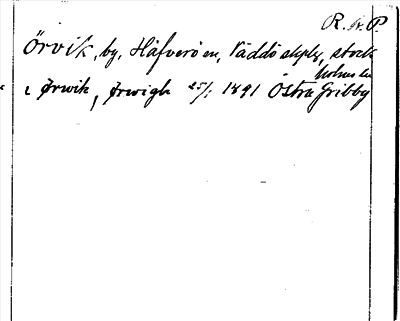 R. A. P.
Örvik, by, Häfverö sn, Väddö skply, stock
holms län
i Ørwik, Ørwigh 25/1 1891 Östra Gribby